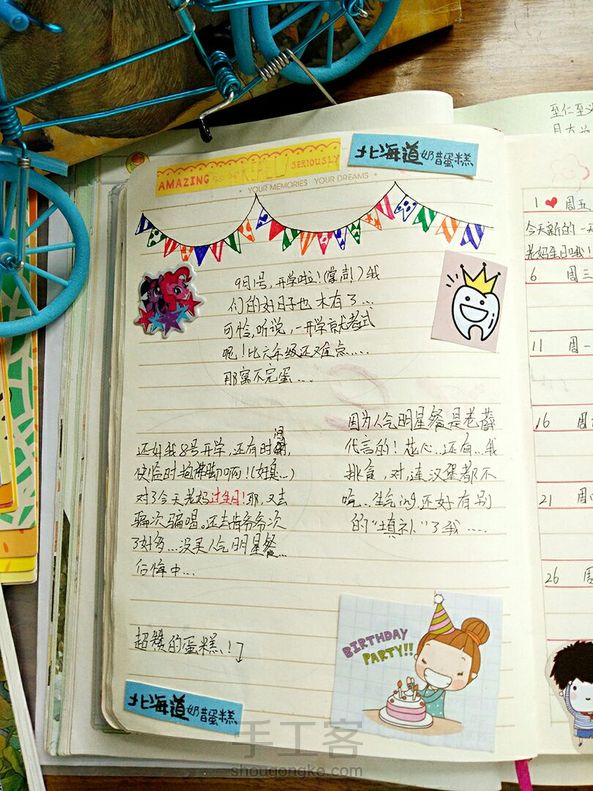 北海道奶昔蛋糕
AMAZING REALLY SERIOUSLY
• YOUR MEMORIES YOUR DREAMS •
9月1号,开学啦!(掌声)我
们的好日子也木有了...
可怜,听说,一开学就考试
呢!比六年级还难点....
那写不完蛋....
还好我8号开学,还有时间,
快临时抱佛脚啊啊!
对了今天老妈过生日!耶,又去
骗次骗喝。还去肯爷爷次
了好多...没买人气明星餐...
后悔中...
因为人气明星餐是老薛
代言的!花心,还有,我
挑食,对,连汉堡都不
吃...生气的,还好有别
的"填补"了我....
超赞的蛋糕!!
BIRTHDAY
PARTY!!
北海道奶昔蛋糕
至仁至义
1 周五
今天新的一
老妈生日哦!
6 周三
11 周一
16 周
21 周
26 周
手工客
shougongke.com